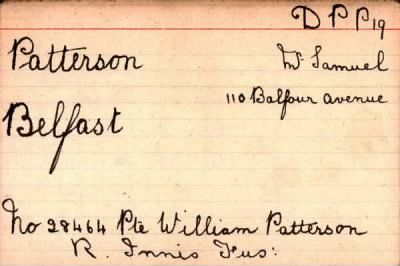 D P P 19
Patterson
Mr. Samuel
110 Balfour avenue
Belfast
No 28464 Pte William Patterson
R. Innis Fus: